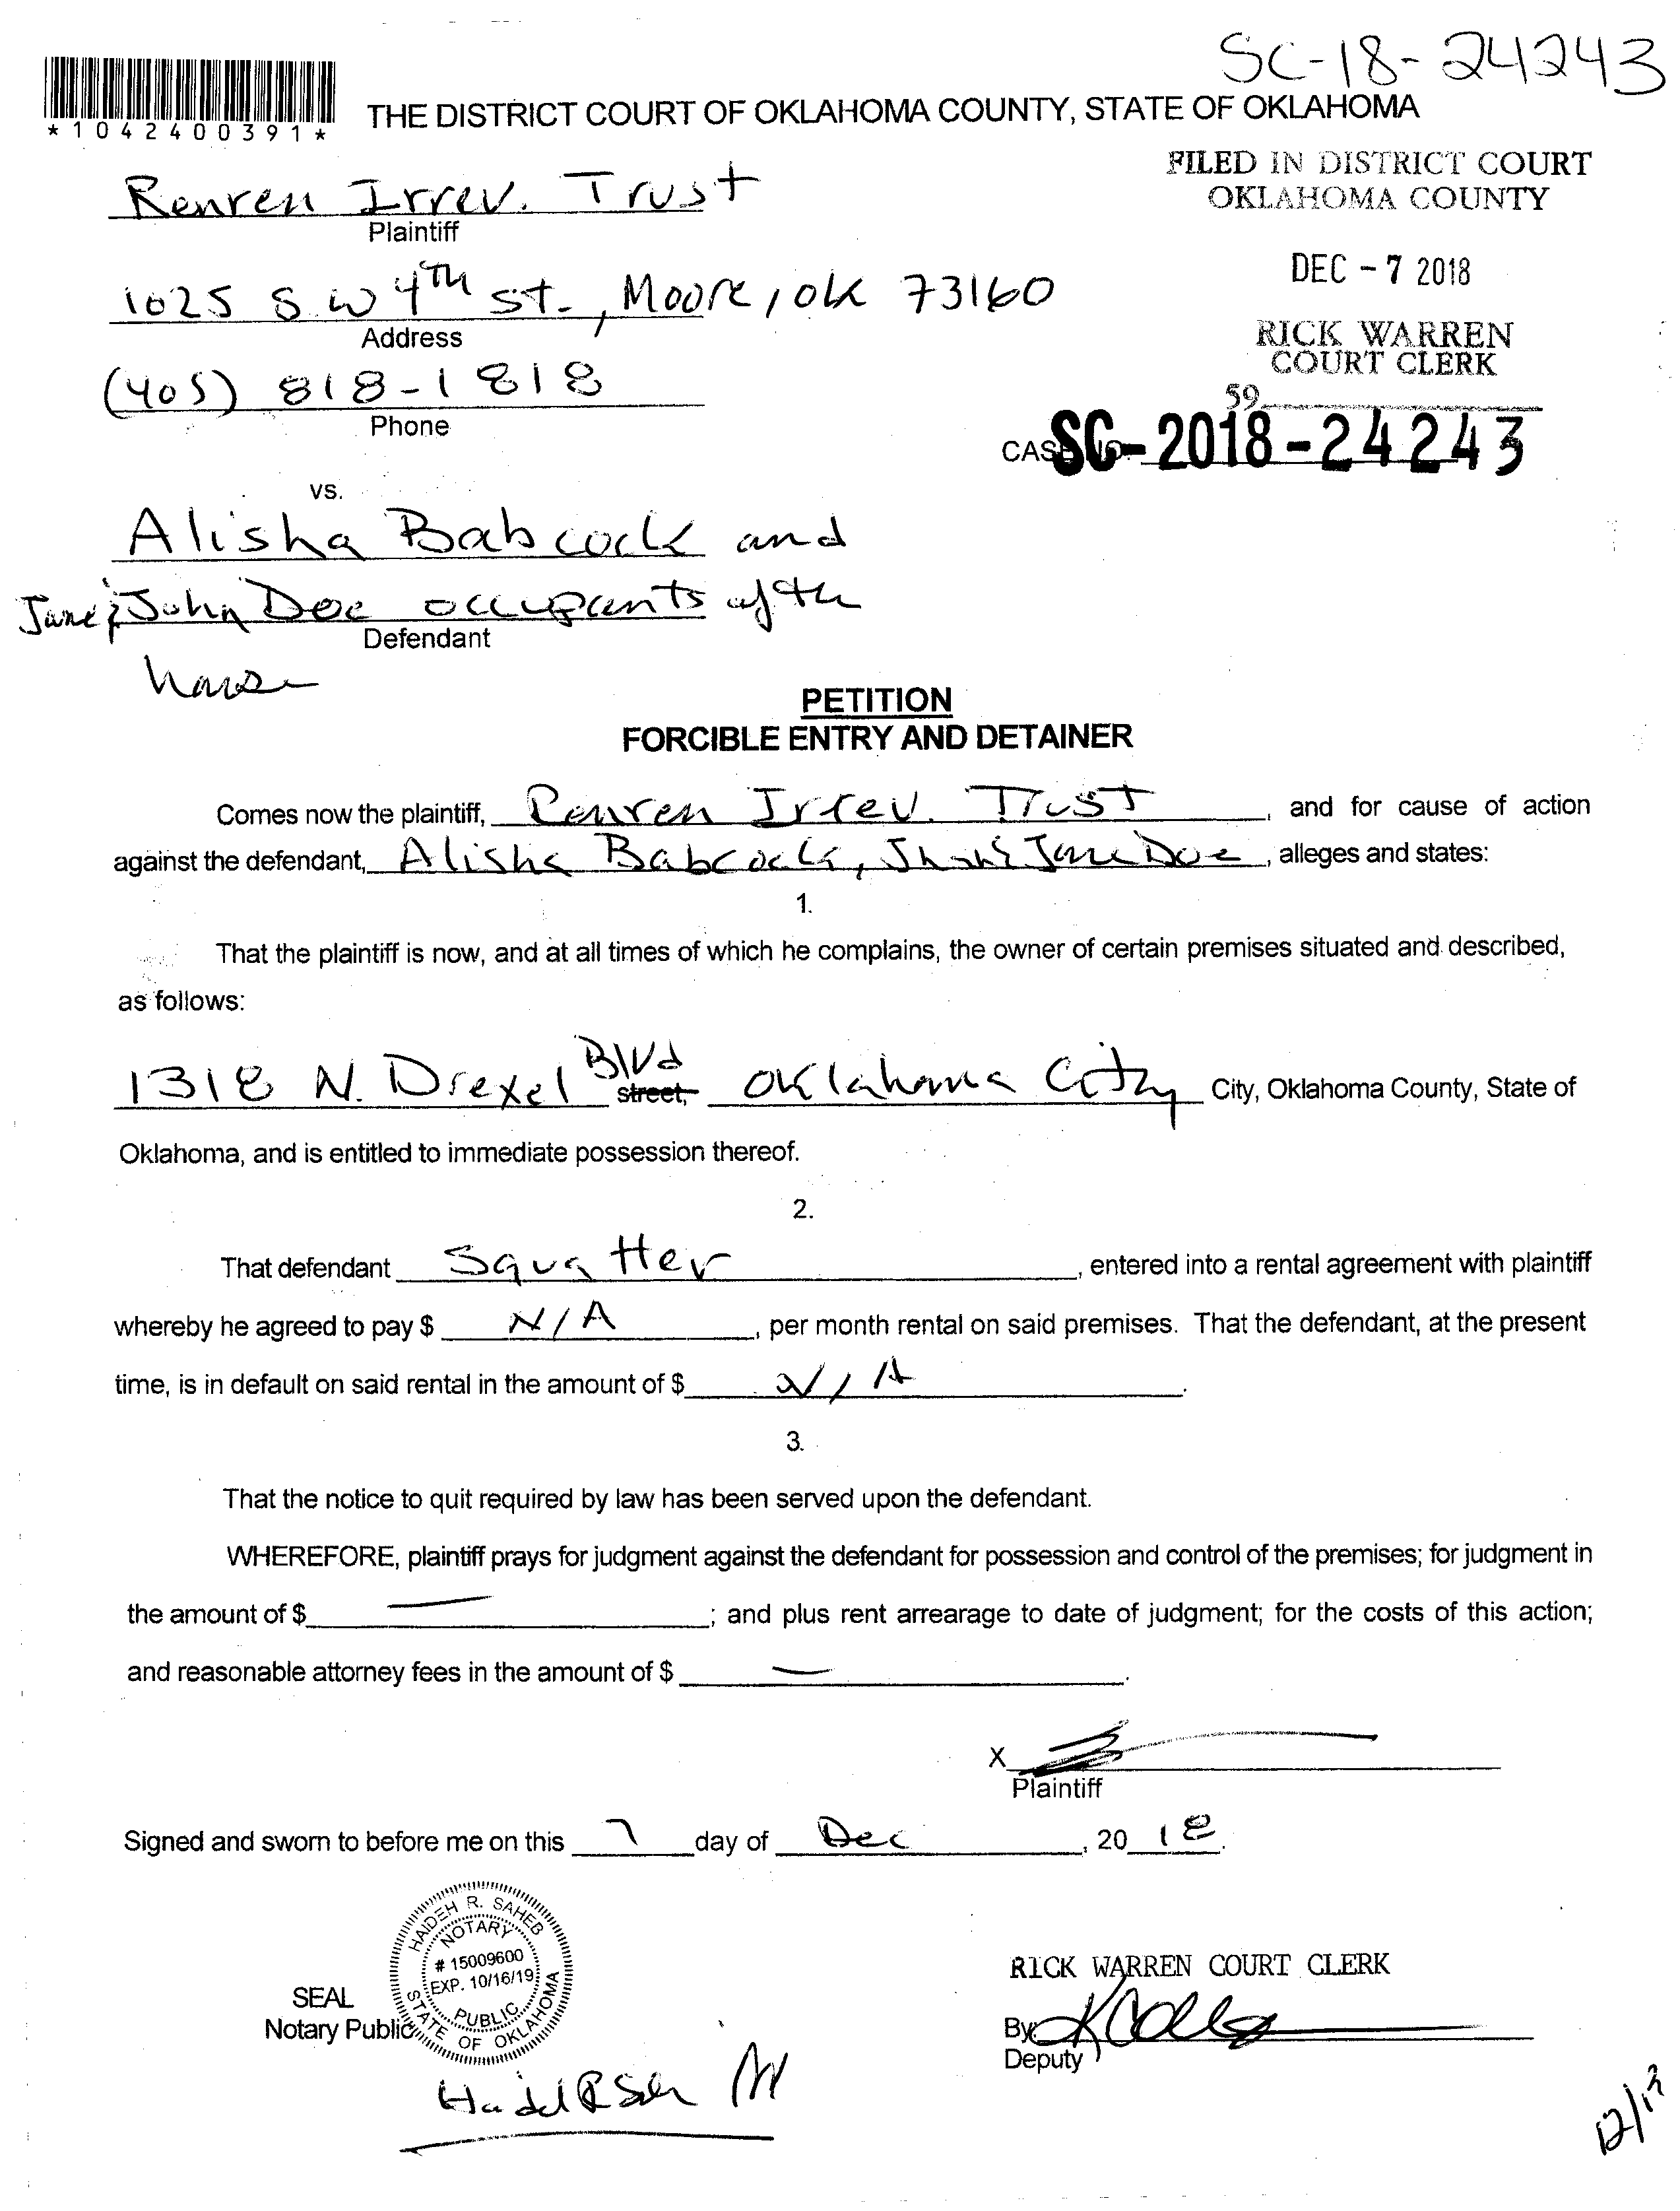 SC-18-24243
*1042400391*
THE DISTRICT COURT OF OKLAHOMA COUNTY, STATE OF OKLAHOMA
FILED IN DISTRICT COURT
OKLAHOMA COUNTY
Renren Irrev. Trust
Plaintiff
DEC - 7 2018
1025 S.W 4TH St., Moore, OK 73160
Address
RICK WARREN
COURT CLERK
(405) 818-1818
Phone
59
CASE NO. SC-2018-24243
vs.
Alisha Babcock and
Jane & John Doe occupants of the
Defendant
house
PETITION
FORCIBLE ENTRY AND DETAINER
Comes now the plaintiff, Renren Irrev. Trust, and for cause of action
against the defendant, Alisha Babcock, John & Jane Doe, alleges and states:
1.
That the plaintiff is now, and at all times of which he complains, the owner of certain premises situated and described,
as follows:
1318 N. Drexel Blvd street, Oklahoma City City, Oklahoma County, State of
Oklahoma, and is entitled to immediate possession thereof.
2.
That defendant Squatter, entered into a rental agreement with plaintiff
whereby he agreed to pay $ N/A, per month rental on said premises. That the defendant, at the present
time, is in default on said rental in the amount of $ N/A.
3.
That the notice to quit required by law has been served upon the defendant.
WHEREFORE, plaintiff prays for judgment against the defendant for possession and control of the premises; for judgment in
the amount of $ —; and plus rent arrearage to date of judgment; for the costs of this action;
and reasonable attorney fees in the amount of $ —.
X
Plaintiff
Signed and sworn to before me on this 7 day of Dec, 2018.
HAIDEH R. SAHEB
NOTARY
# 15009600
EXP. 10/16/19
PUBLIC
STATE OF OKLAHOMA
SEAL
Notary Public
RICK WARREN COURT CLERK
By:
Deputy